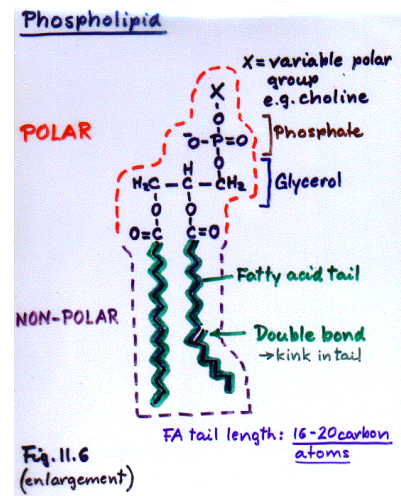 Phospholipid
X = variable polar
group
e.g. choline
X
POLAR
O
⁻O-P=O
Phosphate
O
H
H₂C-C-CH₂
Glycerol
O O
O=C C=O
Fatty acid tail
NON-POLAR
Double bond
→ kink in tail
FA tail length: 16-20 carbon
atoms
Fig. 11.6
(enlargement)